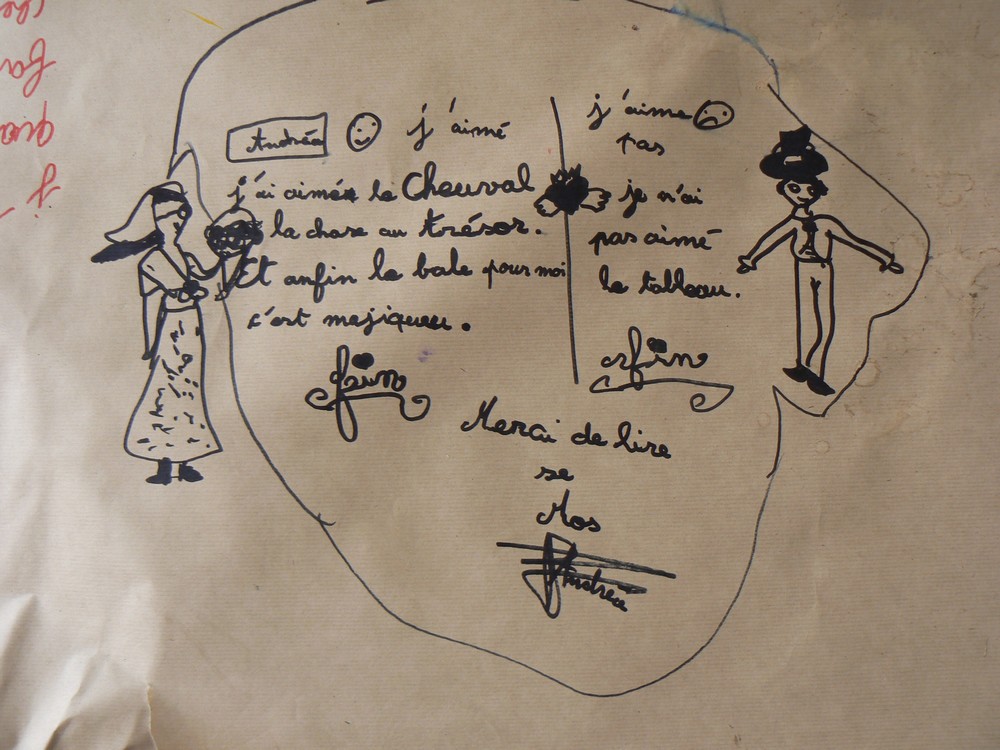 Andréa j'aimé
j'ai aimé le Cheuval
la chase au trésor.
Et anfin le bale pour moi
c'est majiqueu.
fin
j'aime
pas
je n'ai
pas aimé
le tableau.
fin
Merci de lire
se
Mos
Andréa